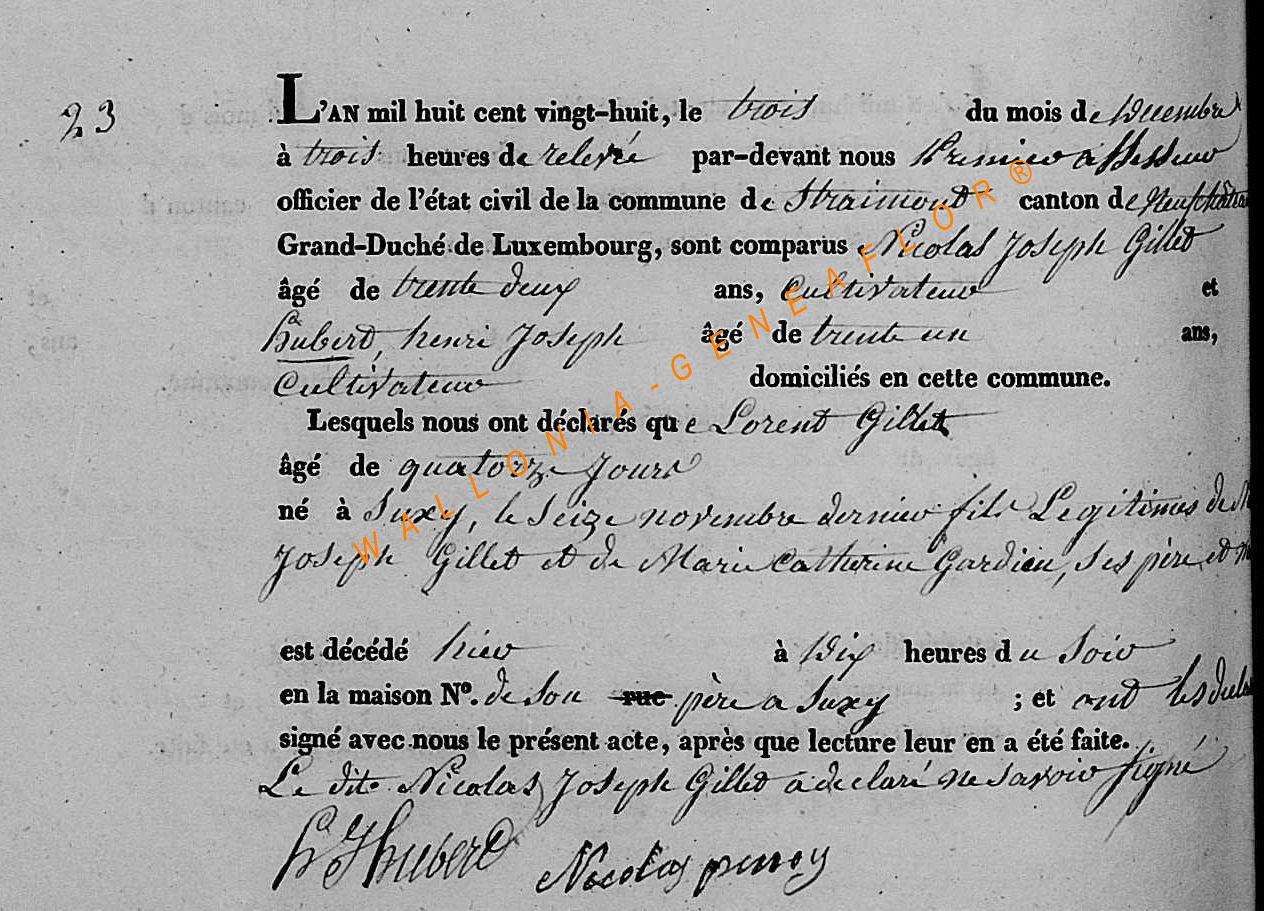 23
L'AN mil huit cent vingt-huit, le trois du mois de Décembre
à trois heures de relevée par-devant nous Premier assesseur
officier de l'état civil de la commune de Straimont canton de Neufchâteau
Grand-Duché de Luxembourg, sont comparus Nicolas Joseph Gillet
âgé de trente deux ans, Cultivateur et
hubert, henri Joseph âgé de trente un ans,
Cultivateur domiciliés en cette commune.
Lesquels nous ont déclarés que Lorent Gillet
âgé de quatorze Jours
né à Suxy, le Seize novembre dernier fils Legitimes de
Joseph Gillet et de Marie Catherine Gardieu, ses père et
est décédé hier à Dix heures du Soir
en la maison N°. de son rue père a Suxy ; et ont les
signé avec nous le présent acte, après que lecture leur en a été faite.
Le dit Nicolas Joseph Gillet a declaré ne savoir signé
h J hubert Nicolas
WALLONIA-GENEAFLOR®